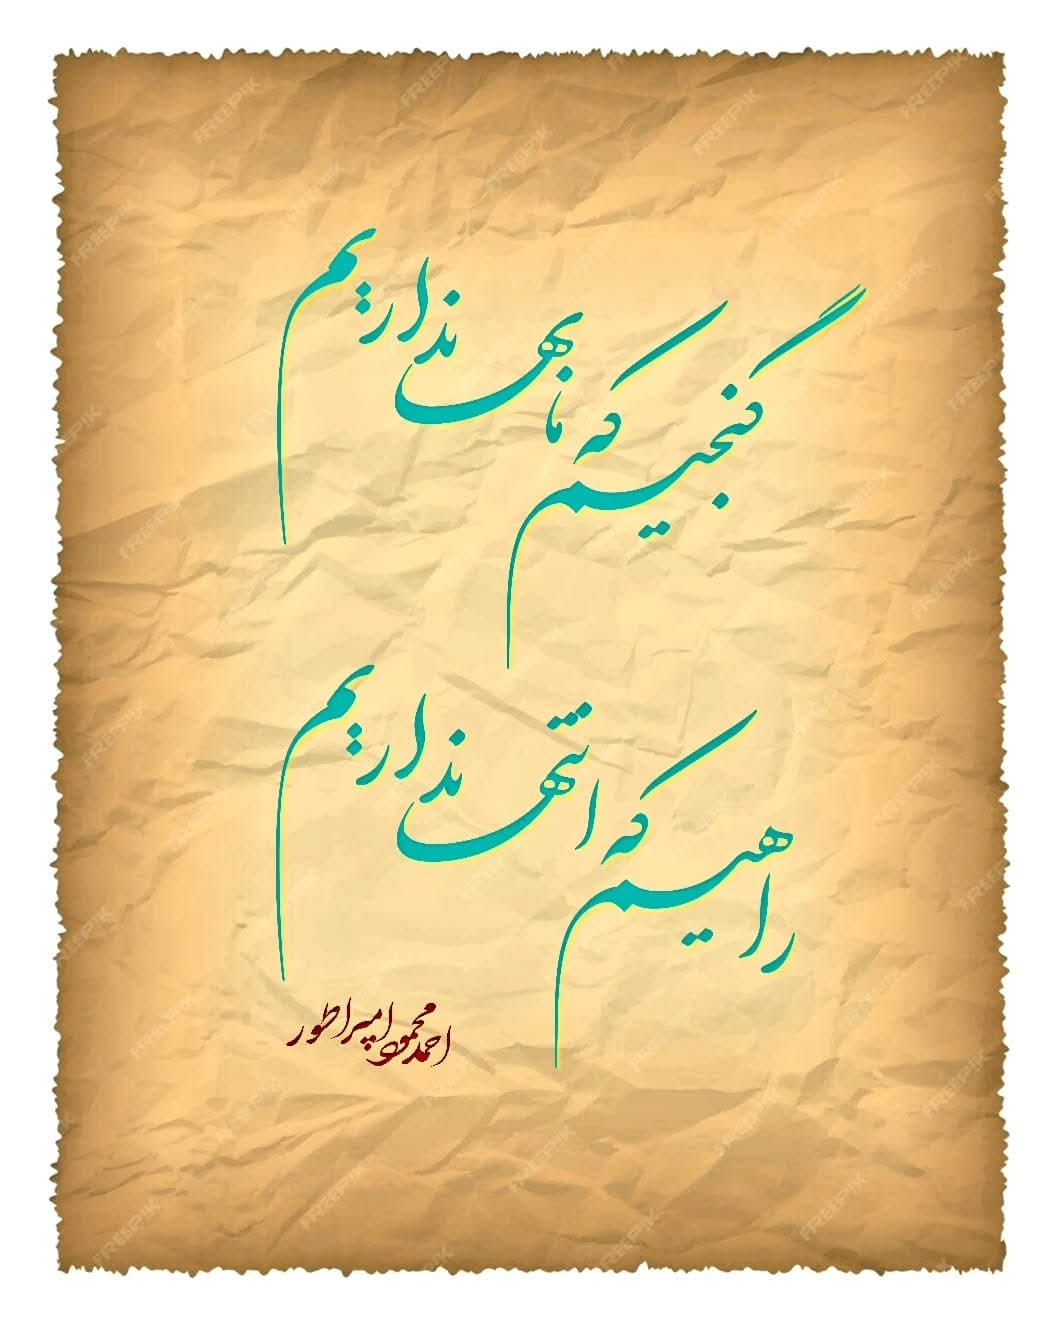 گنجیم که ما بها نداریم
راهیم که انتها نداریم
احمد محمود امپراطور